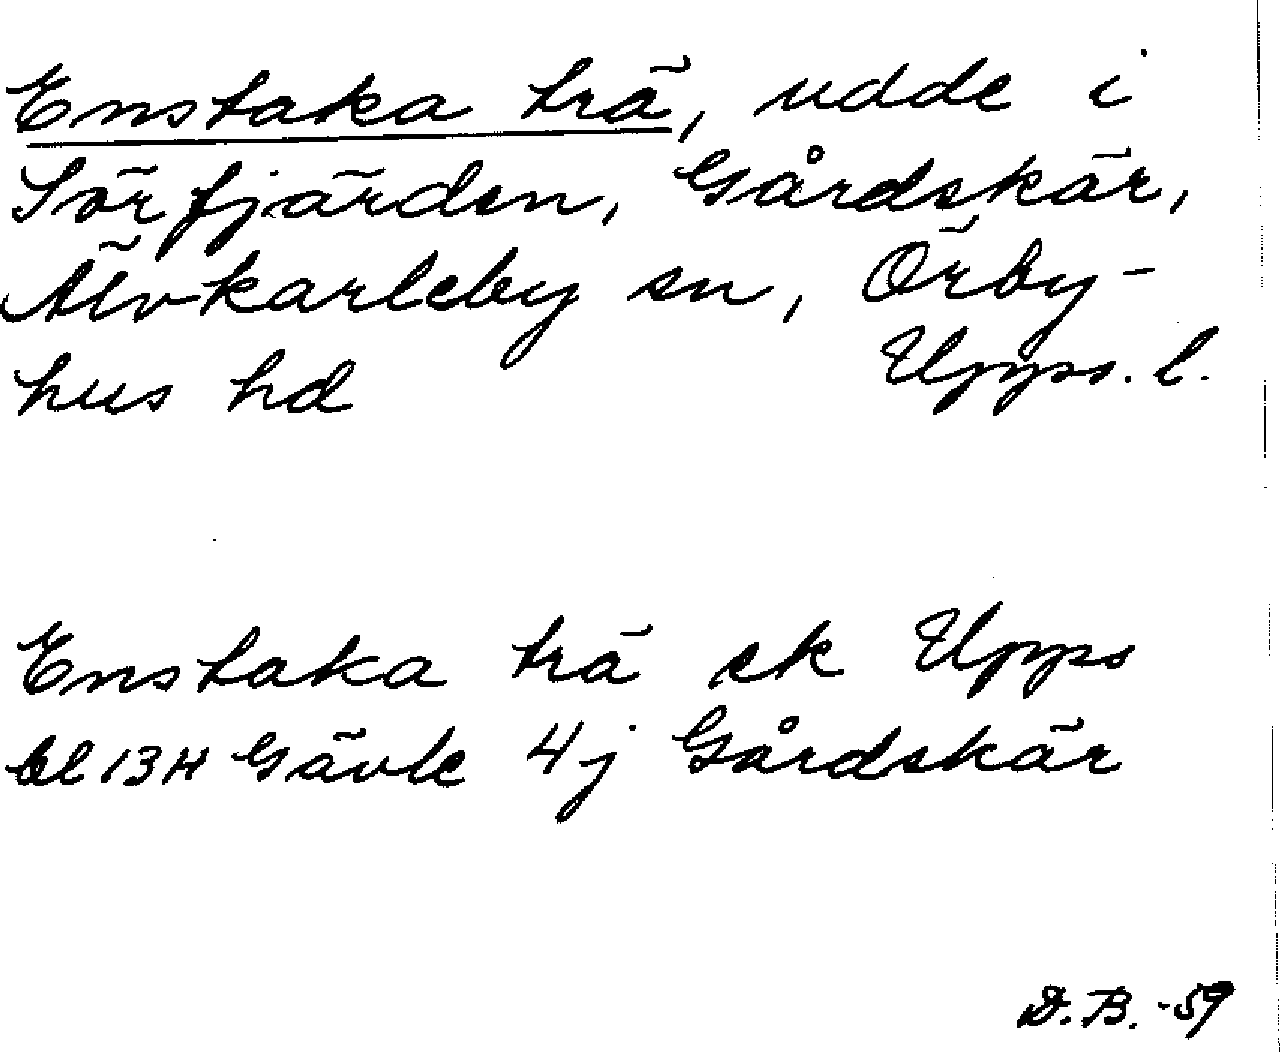 Enstaka trä, udde i
Sörfjärden, Gårdskär,
Älvkarleby sn, Örby-
hus hd Upps. l.
Enstaka trä ek Upps
bl 13H Gävle 4j Gårdskär
D.B. -59